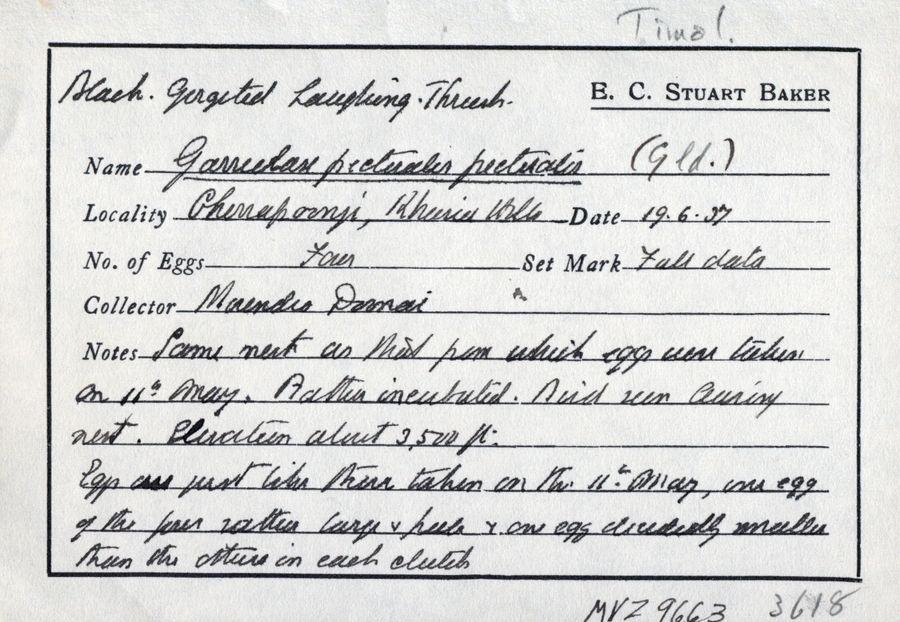 Timal.
Black. Gorgeted Laughing-Thrush.
E. C. STUART BAKER
Name Garrulax pectoralis pectoralis (Gld.)
Locality Cherrapoonji, Khasia Hills Date 19.6.37
No. of Eggs Four Set Mark Full data
Collector Domai
Notes Same nest as that from which eggs were taken
on 11th May. Rather incubated. Bird seen leaving
nest. Elevation about 3,500 ft.
Eggs are just like those taken on the 11th May, one egg
of the four rather large & pale & one egg decidedly smaller
than the others in each clutch
MVZ 9663 3618